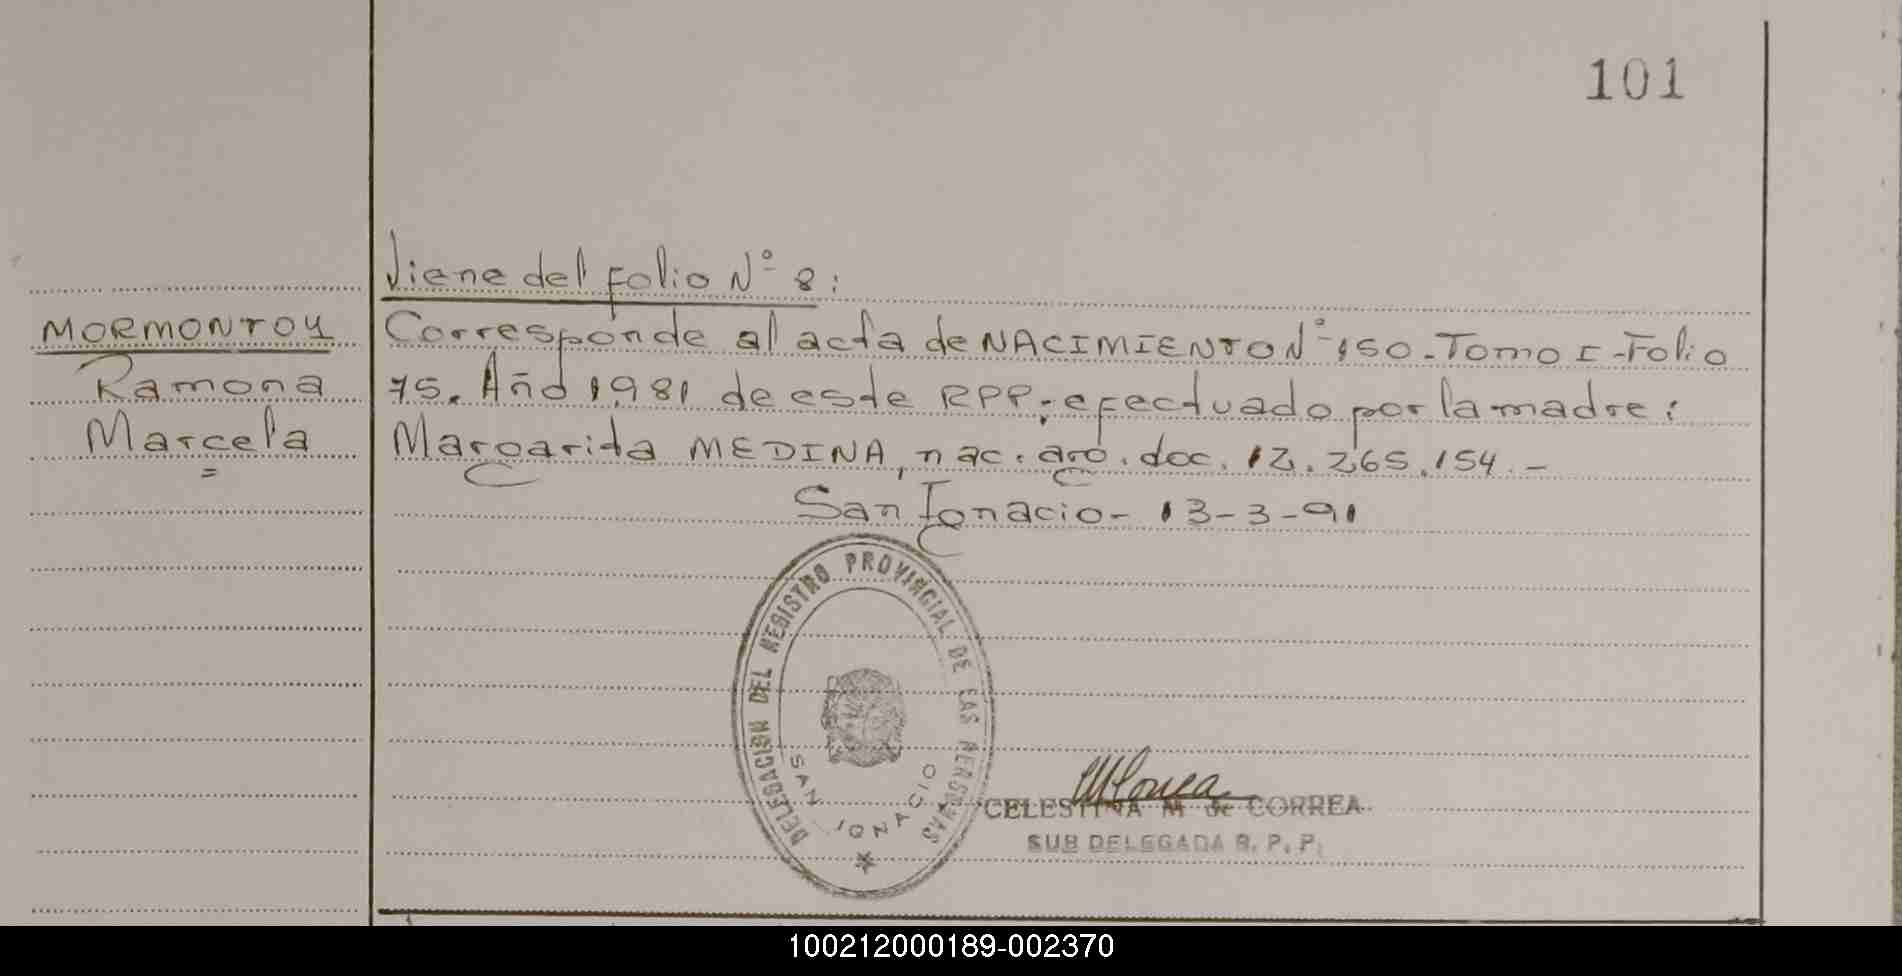 101
Viene del folio N° 8:
MORMONTOY
Ramona
Marcela
Corresponde al acta de NACIMIENTO N° 150 - Tomo I - Folio
75. Año 1981 de este RPP; efectuado por la madre:
Margarita MEDINA, nac. arg. doc. 12.265.154. -
San Ignacio - 13-3-91
DELEGACION DEL REGISTRO PROVINCIAL DE LAS PERSONAS
SAN IGNACIO
CELESTINA M de CORREA
SUB DELEGADA R. P. P.
100212000189-002370